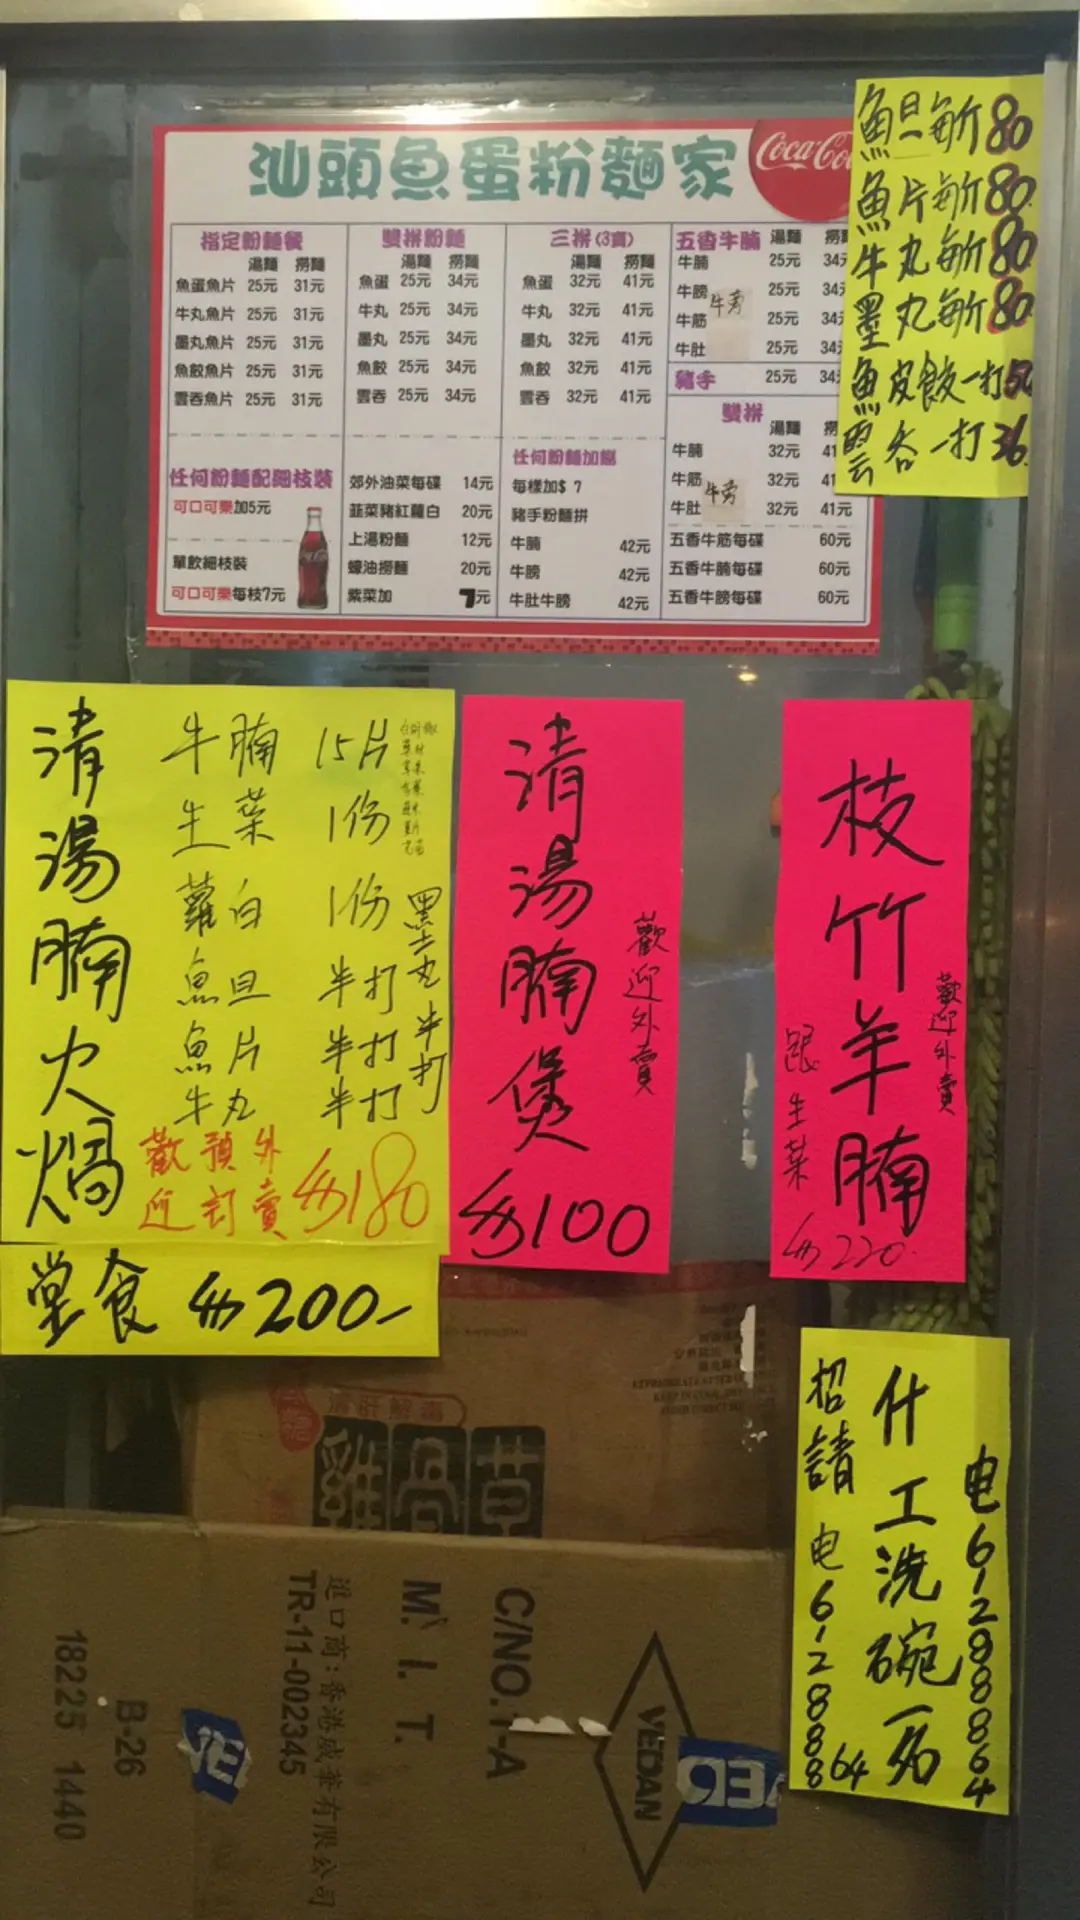 汕頭魚蛋粉麵家
Coca-Co
指定粉麵餐
湯麵 撈麵
魚蛋魚片 25元 31元
牛丸魚片 25元 31元
墨丸魚片 25元 31元
魚餃魚片 25元 31元
雲吞魚片 25元 31元
任何粉麵配細枝裝
可口可樂加5元
單飲細枝裝
可口可樂每枝7元
雙拼粉麵
湯麵 撈麵
魚蛋 25元 34元
牛丸 25元 34元
墨丸 25元 34元
魚餃 25元 34元
雲吞 25元 34元
郊外油菜每碟 14元
韮菜豬紅蘿白 20元
上湯粉麵 12元
蠔油撈麵 20元
紫菜加 7元
三拼(3寶)
湯麵 撈麵
魚蛋 32元 41元
牛丸 32元 41元
墨丸 32元 41元
魚餃 32元 41元
雲吞 32元 41元
任何粉麵加餸
每樣加$ 7
豬手粉麵拼
牛腩 42元
牛膀 42元
牛肚牛膀 42元
五香牛腩 湯麵 撈麵
牛腩 25元 34元
牛膀 25元 34
牛旁
牛筋 25元 34
牛肚 25元 34
豬手 25元 34
雙拼
湯麵 撈
牛腩 32元 41
牛筋 32元 41
牛旁
牛肚 32元 41元
五香牛筋每碟 60元
五香牛腩每碟 60元
五香牛膀每碟 60元
魚旦每斤80
魚片每斤80
牛丸每斤80
墨丸每斤80
魚皮餃一打50
雲吞一打36
清湯腩火焗
牛腩 15片
生菜 1份
蘿白 1份
魚旦 半打
魚片 半打
牛丸 半打
墨丸半打
歡迎預訂外賣 $180
堂食 $200-
清湯腩煲
歡迎外賣
$100
枝竹羊腩
歡迎外賣
跟生菜
$220
招請
什工洗碗一名
电61288864
电61288864
清肝解毒
雞骨草
C/NO.1-A
M. I. T.
進口商:香港威華有限公司
TR-11-002345
B-26
18225 1440
VEDAN